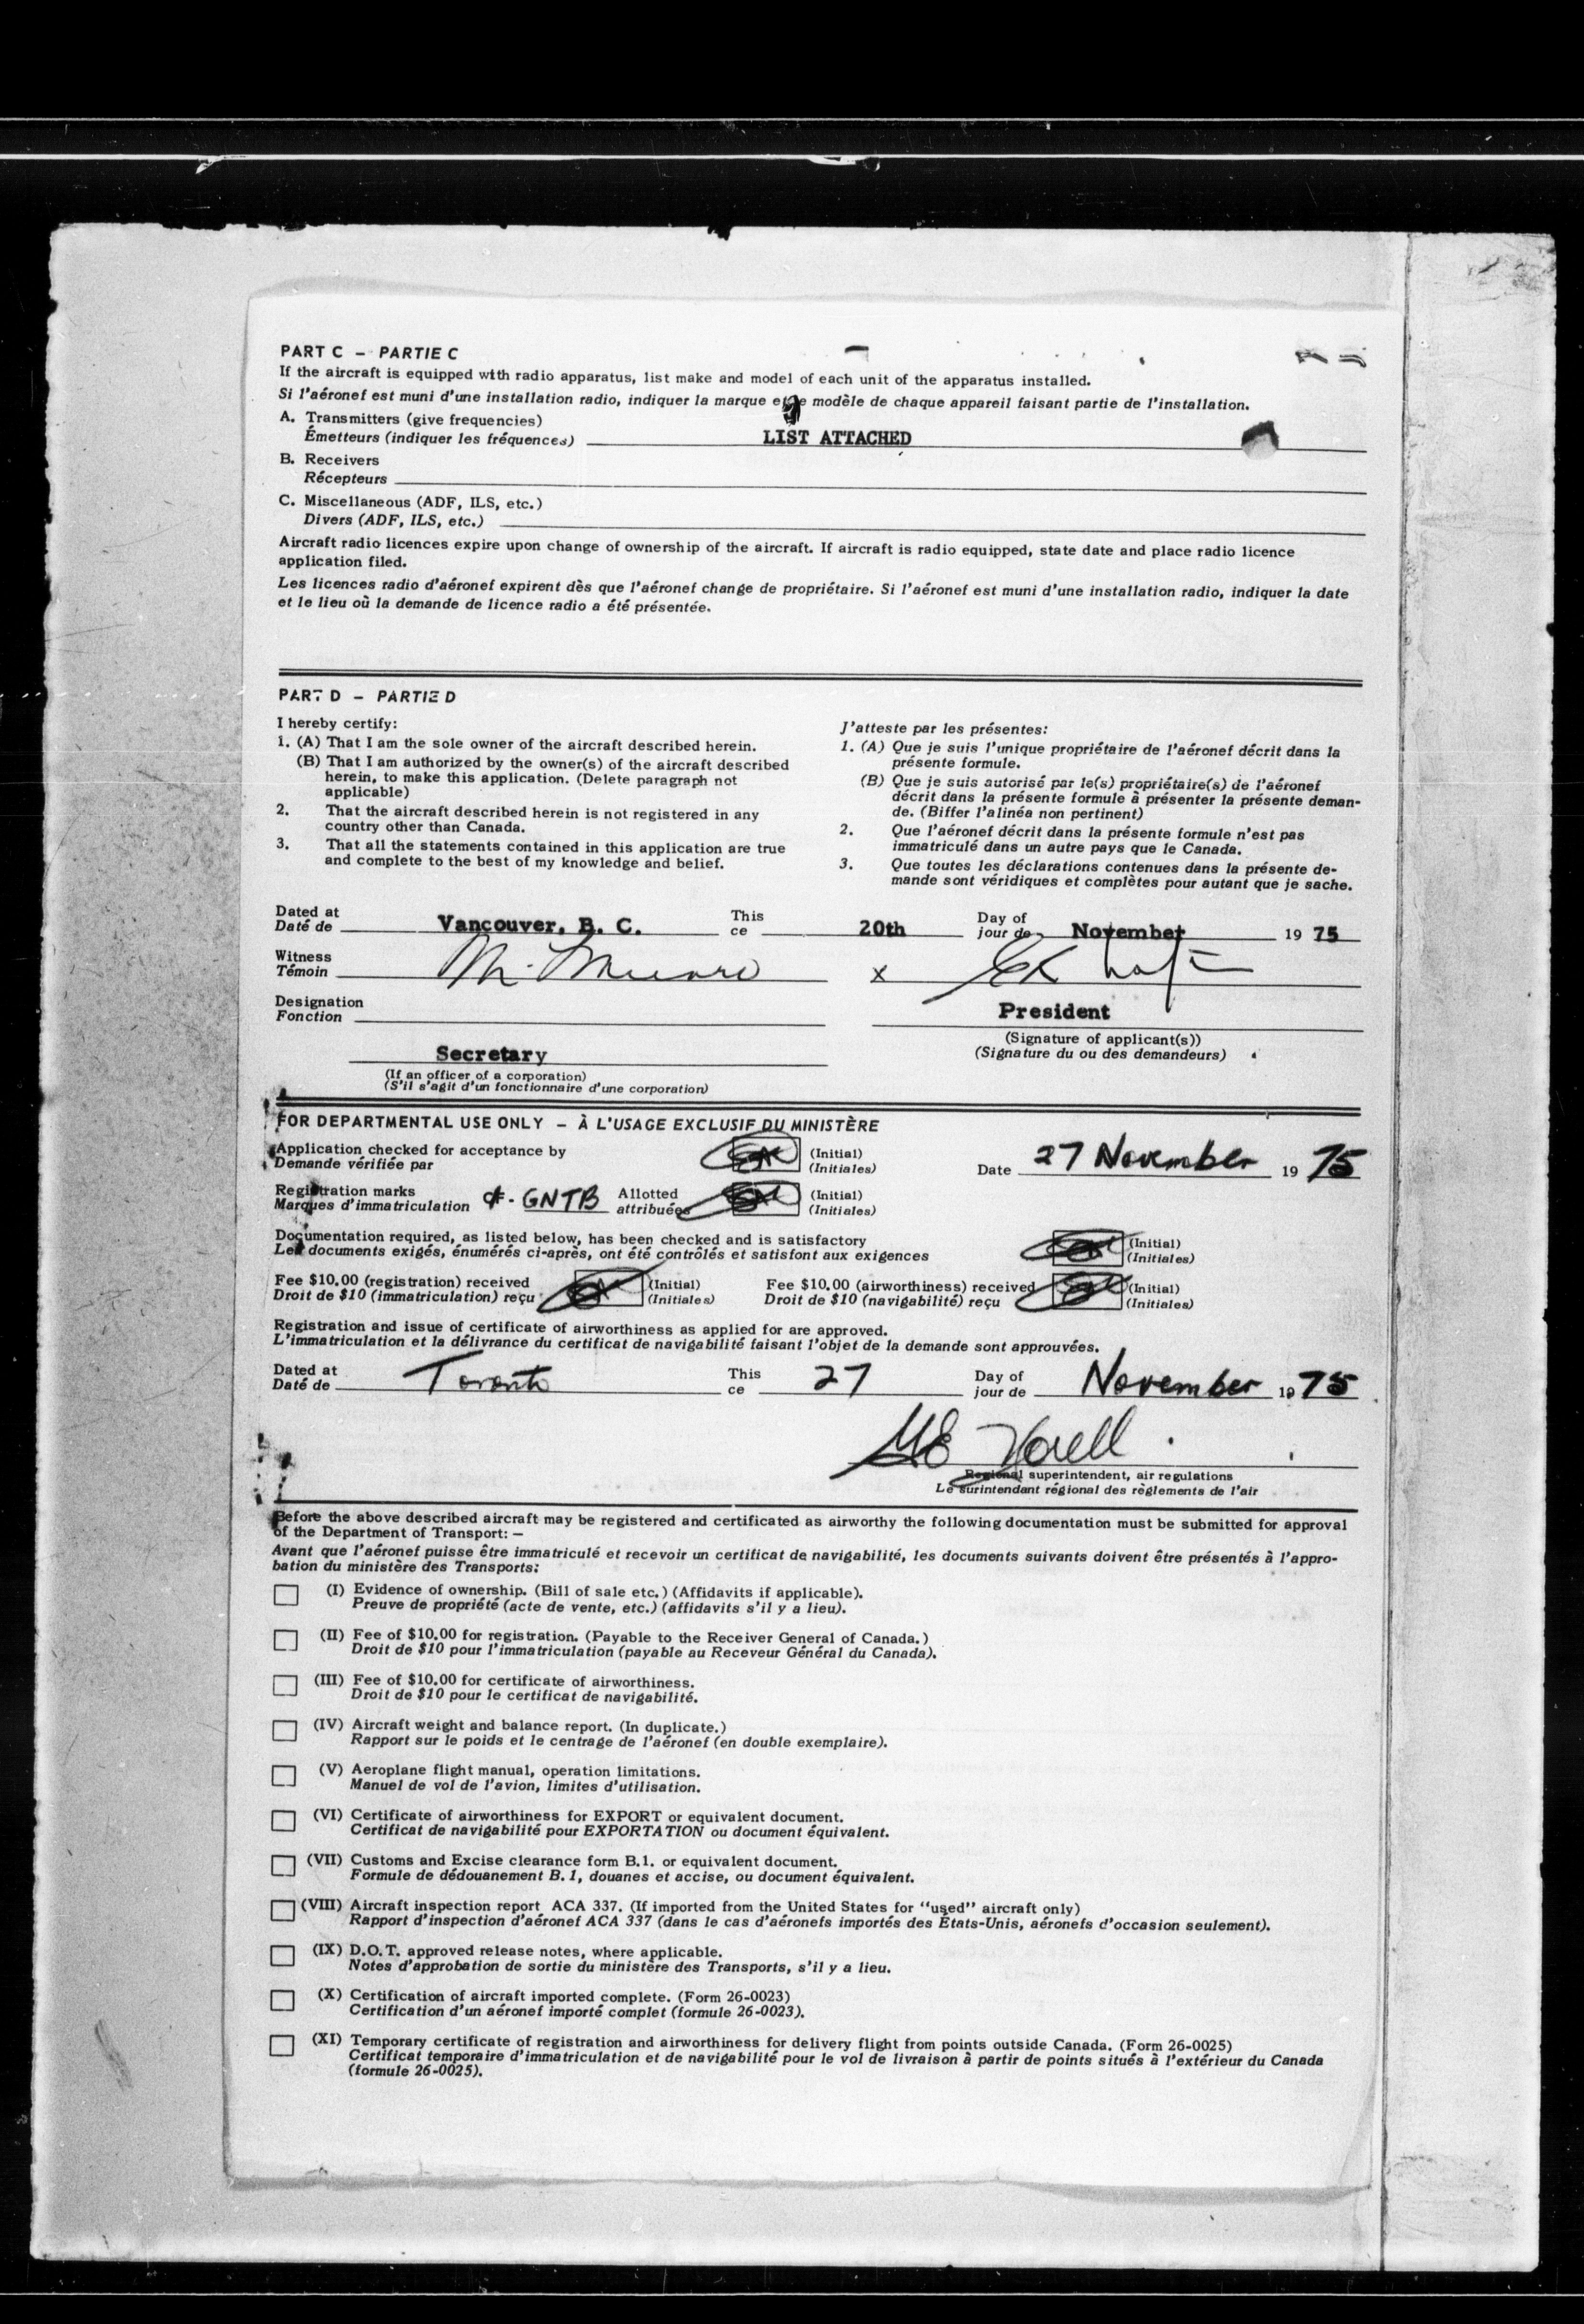 PART C – PARTIE C
If the aircraft is equipped with radio apparatus, list make and model of each unit of the apparatus installed.
Si l'aéronef est muni d'une installation radio, indiquer la marque et le modèle de chaque appareil faisant partie de l'installation.
A. Transmitters (give frequencies)
Émetteurs (indiquer les fréquences) LIST ATTACHED
B. Receivers
Récepteurs
C. Miscellaneous (ADF, ILS, etc.)
Divers (ADF, ILS, etc.)
Aircraft radio licences expire upon change of ownership of the aircraft. If aircraft is radio equipped, state date and place radio licence
application filed.
Les licences radio d'aéronef expirent dès que l'aéronef change de propriétaire. Si l'aéronef est muni d'une installation radio, indiquer la date
et le lieu où la demande de licence radio a été présentée.
PART D – PARTIE D
I hereby certify:
1. (A) That I am the sole owner of the aircraft described herein.
(B) That I am authorized by the owner(s) of the aircraft described
herein, to make this application. (Delete paragraph not
applicable)
2. That the aircraft described herein is not registered in any
country other than Canada.
3. That all the statements contained in this application are true
and complete to the best of my knowledge and belief.
J'atteste par les présentes:
1. (A) Que je suis l'unique propriétaire de l'aéronef décrit dans la
présente formule.
(B) Que je suis autorisé par le(s) propriétaire(s) de l'aéronef
décrit dans la présente formule à présenter la présente deman-
de. (Biffer l'alinéa non pertinent)
2. Que l'aéronef décrit dans la présente formule n'est pas
immatriculé dans un autre pays que le Canada.
3. Que toutes les déclarations contenues dans la présente de-
mande sont véridiques et complètes pour autant que je sache.
Dated at This Day of
Daté de Vancouver, B. C. ce 20th jour de November 19 75
Witness
Témoin M. Munro x
Designation
Fonction
President
(Signature of applicant(s))
(Signature du ou des demandeurs)
Secretary
(If an officer of a corporation)
(S'il s'agit d'un fonctionnaire d'une corporation)
FOR DEPARTMENTAL USE ONLY – À L'USAGE EXCLUSIF DU MINISTÈRE
Application checked for acceptance by (Initial)
Demande vérifiée par (Initiales) Date 27 November 19 75
Registration marks Allotted (Initial)
Marques d'immatriculation C-GNTB attribuées (Initiales)
Documentation required, as listed below, has been checked and is satisfactory (Initial)
Les documents exigés, énumérés ci-après, ont été contrôlés et satisfont aux exigences (Initiales)
Fee $10.00 (registration) received (Initial) Fee $10.00 (airworthiness) received (Initial)
Droit de $10 (immatriculation) reçu (Initiales) Droit de $10 (navigabilité) reçu (Initiales)
Registration and issue of certificate of airworthiness as applied for are approved.
L'immatriculation et la délivrance du certificat de navigabilité faisant l'objet de la demande sont approuvées.
Dated at This Day of
Daté de Toronto ce 27 jour de November 19 75
Regional superintendent, air regulations
Le surintendant régional des règlements de l'air
Before the above described aircraft may be registered and certificated as airworthy the following documentation must be submitted for approval
of the Department of Transport: –
Avant que l'aéronef puisse être immatriculé et recevoir un certificat de navigabilité, les documents suivants doivent être présentés à l'appro-
bation du ministère des Transports:
(I) Evidence of ownership. (Bill of sale etc.) (Affidavits if applicable).
Preuve de propriété (acte de vente, etc.) (affidavits s'il y a lieu).
(II) Fee of $10.00 for registration. (Payable to the Receiver General of Canada.)
Droit de $10 pour l'immatriculation (payable au Receveur Général du Canada).
(III) Fee of $10.00 for certificate of airworthiness.
Droit de $10 pour le certificat de navigabilité.
(IV) Aircraft weight and balance report. (In duplicate.)
Rapport sur le poids et le centrage de l'aéronef (en double exemplaire).
(V) Aeroplane flight manual, operation limitations.
Manuel de vol de l'avion, limites d'utilisation.
(VI) Certificate of airworthiness for EXPORT or equivalent document.
Certificat de navigabilité pour EXPORTATION ou document équivalent.
(VII) Customs and Excise clearance form B.1. or equivalent document.
Formule de dédouanement B.1, douanes et accise, ou document équivalent.
(VIII) Aircraft inspection report ACA 337. (If imported from the United States for "used" aircraft only)
Rapport d'inspection d'aéronef ACA 337 (dans le cas d'aéronefs importés des États-Unis, aéronefs d'occasion seulement).
(IX) D.O.T. approved release notes, where applicable.
Notes d'approbation de sortie du ministère des Transports, s'il y a lieu.
(X) Certification of aircraft imported complete. (Form 26-0023)
Certification d'un aéronef importé complet (formule 26-0023).
(XI) Temporary certificate of registration and airworthiness for delivery flight from points outside Canada. (Form 26-0025)
Certificat temporaire d'immatriculation et de navigabilité pour le vol de livraison à partir de points situés à l'extérieur du Canada
(formule 26-0025).